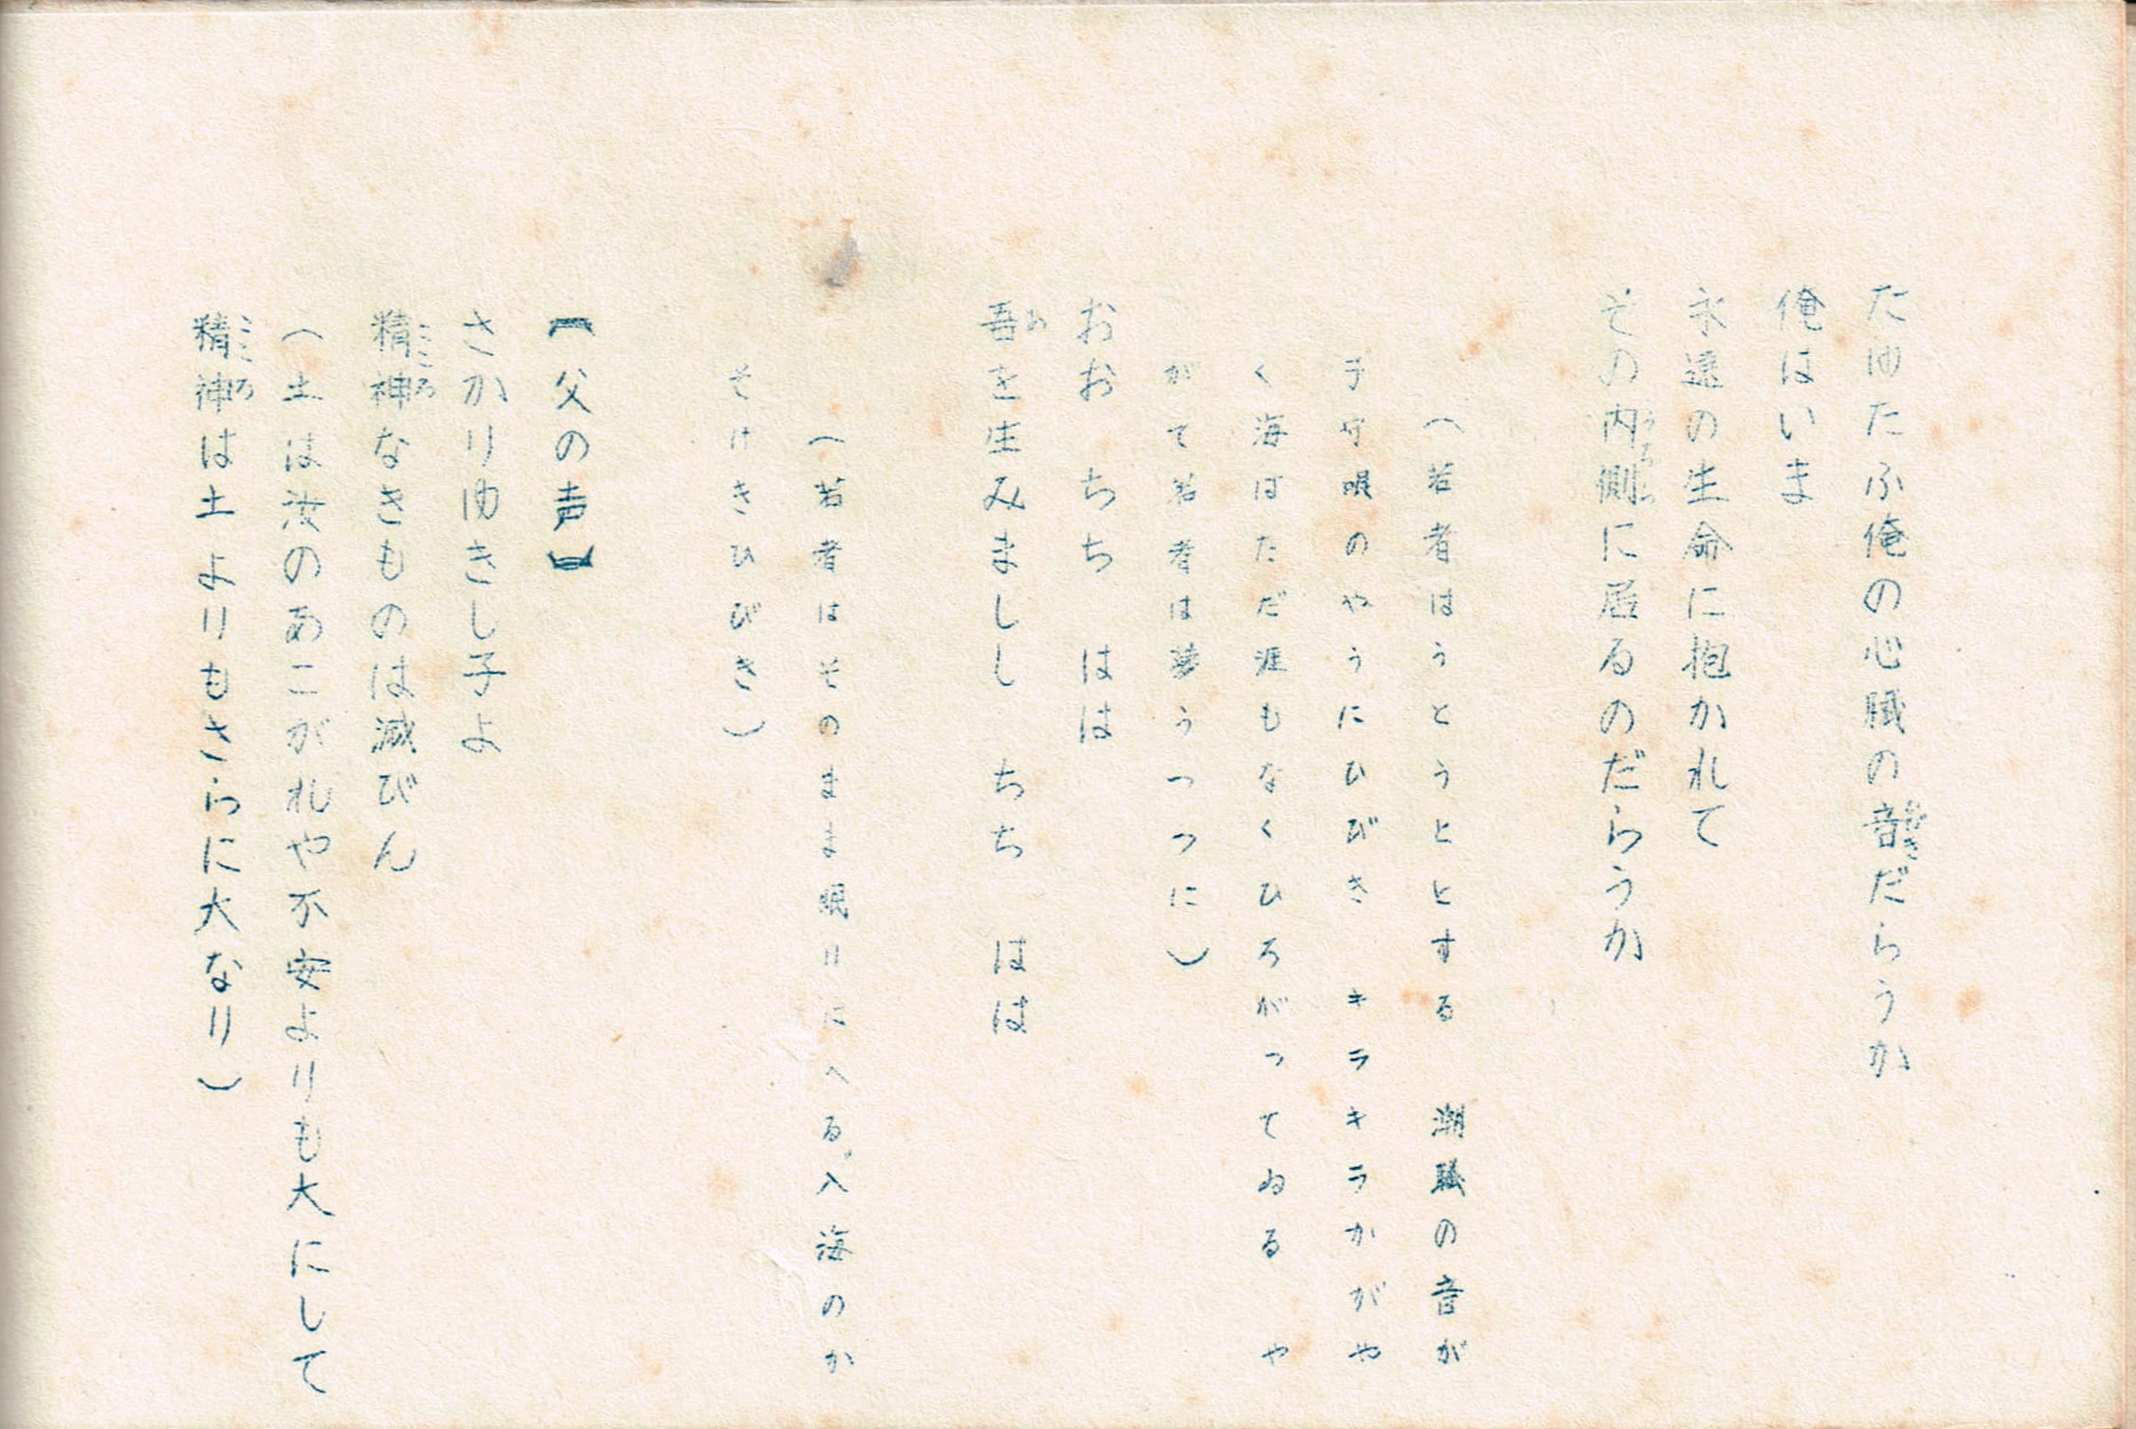 たゆたふ俺の心臓の音だらうか
俺はいま
永遠の生命に抱かれて
その内側に居るのだらうか
（若者はうとうとする　潮騒の音が
子守唄のやうにひびき　キラキラかがや
く海はただ涯もなくひろがってゐる　や
がて若者は夢うつつに）
おお　ちち　はは
吾を生みましし　ちち　はは
（若者はそのまま眠りにへる　入海のか
そけきひびき）
【父の声】
さかりゆきし子よ
精神なきものは滅びん
（土は汝のあこがれや不安よりも大にして
精神は土よりもさらに大なり）